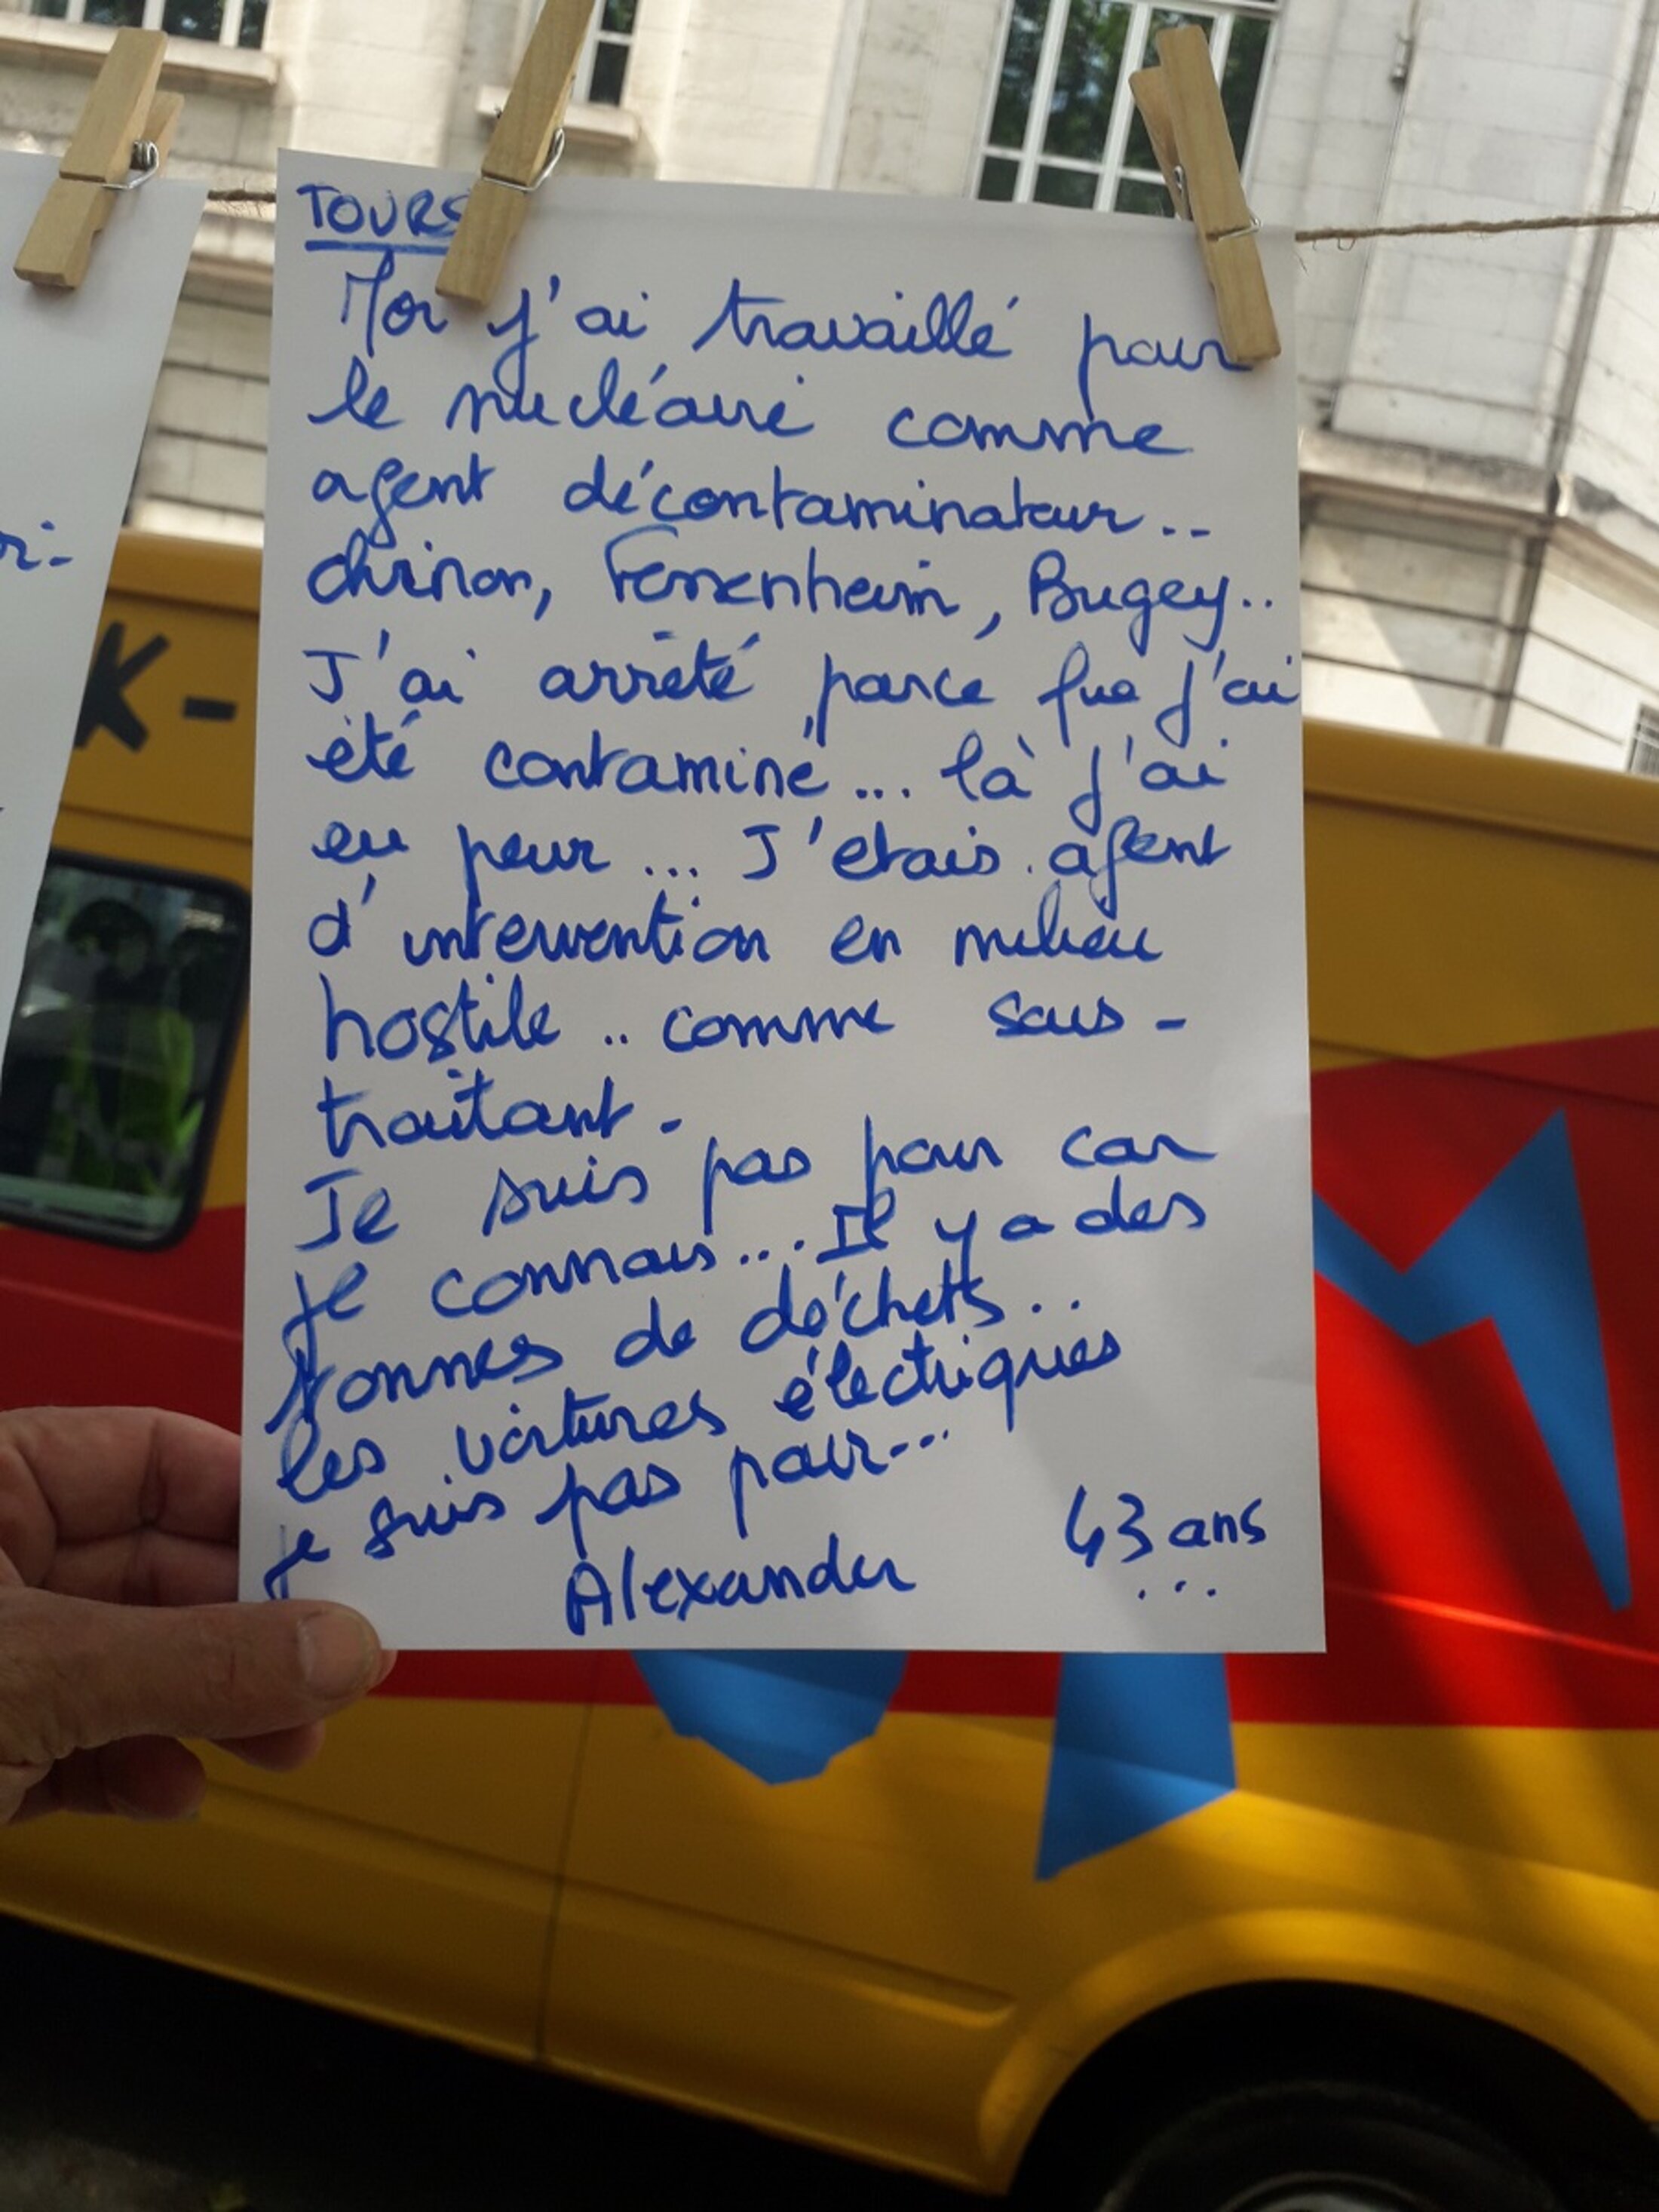 TOURS
Moi j'ai travaillé pour
le nucléaire comme
agent décontaminateur..
chinon, Fessenheim, Bugey..
J'ai arrêté parce que j'ai
été contaminé... là j'ai
eu peur... J'etais agent
d'intervention en milieu
hostile.. comme sous-
traitant.
Je suis pas pour car
je connais... Il y a des
tonnes de déchets..
les voitures électriques
je suis pas pour...
Alexander 43 ans
...
ri-
K-